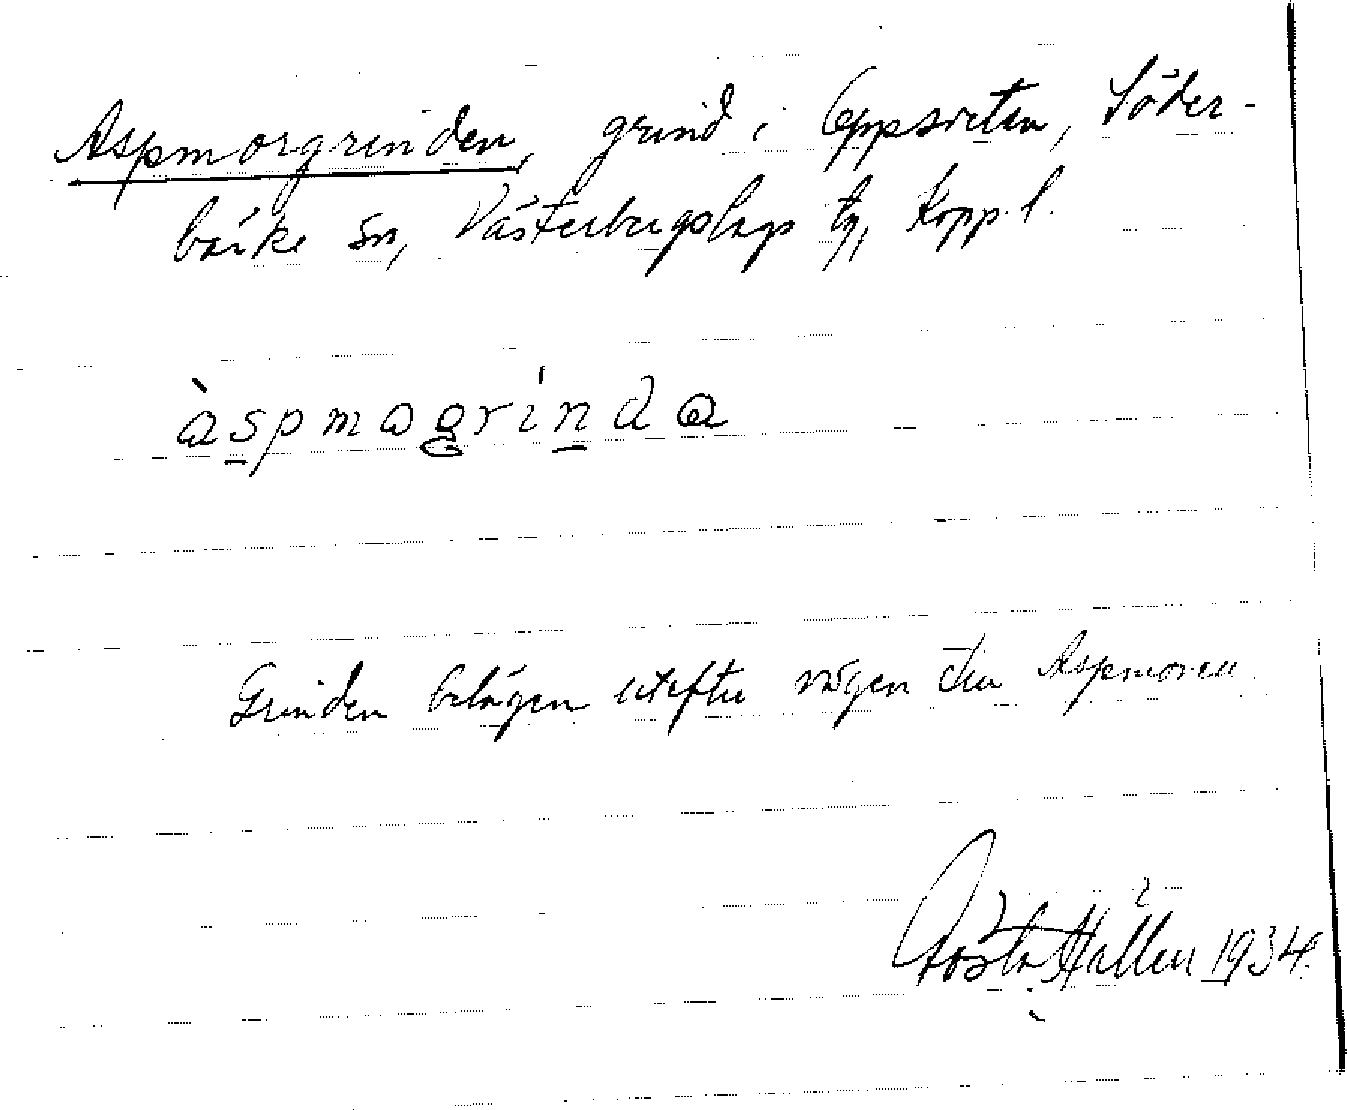 Aspmorgrinden, grind i Oppsveten, Söder-
bärke sn, Västerbergslags tg, Kopp. l.
àspmogrínda
Grinden belägen utefter vägen till Aspmoren
Gösta Hállen 1934.